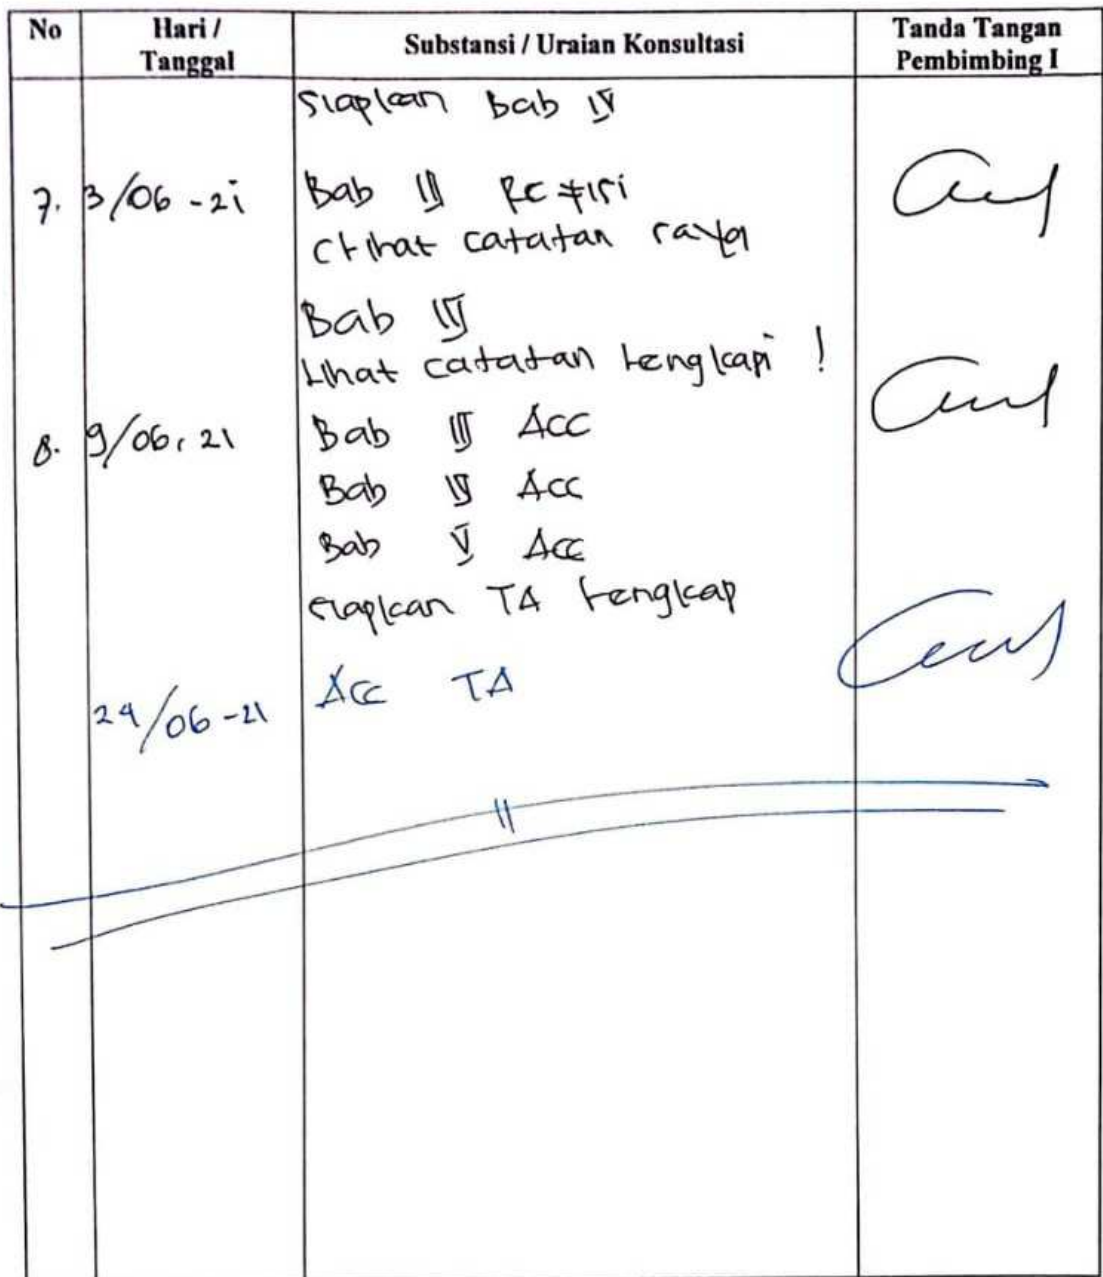 No Hari / Tanggal Substansi / Uraian Konsultasi Tanda Tangan Pembimbing I
Siapkan Bab IV
7. 3/06-21 Bab III Refisi
Lihat catatan saya
Bab IV
Lihat catatan Lengkapi !
8. 9/06, 21 Bab III Acc
Bab IV Acc
Bab V Acc
Siapkan TA Lengkap
24/06-21 Acc TA